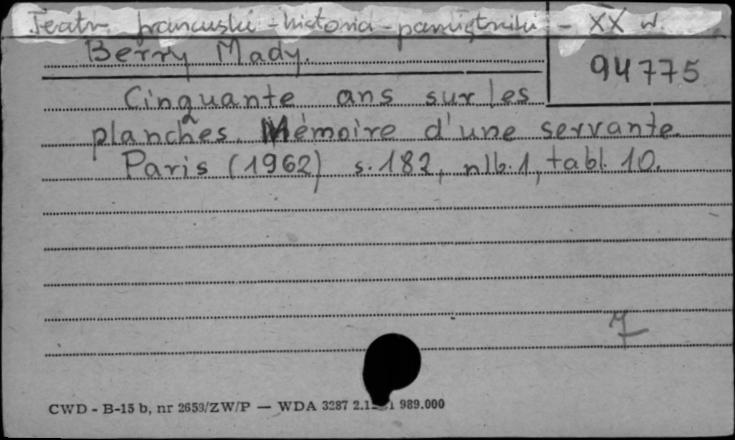 Teatr francuski - historia - pamiętniki - XX w.
Berry Mady.
94775
Cinquante ans sur les
planches. Mémoire d'une servante.
Paris (1962) s. 182, nlb. 1, tabl. 10.
CWD - B-15 b, nr 2653/ZW/P — WDA 3287 2.1 989.000